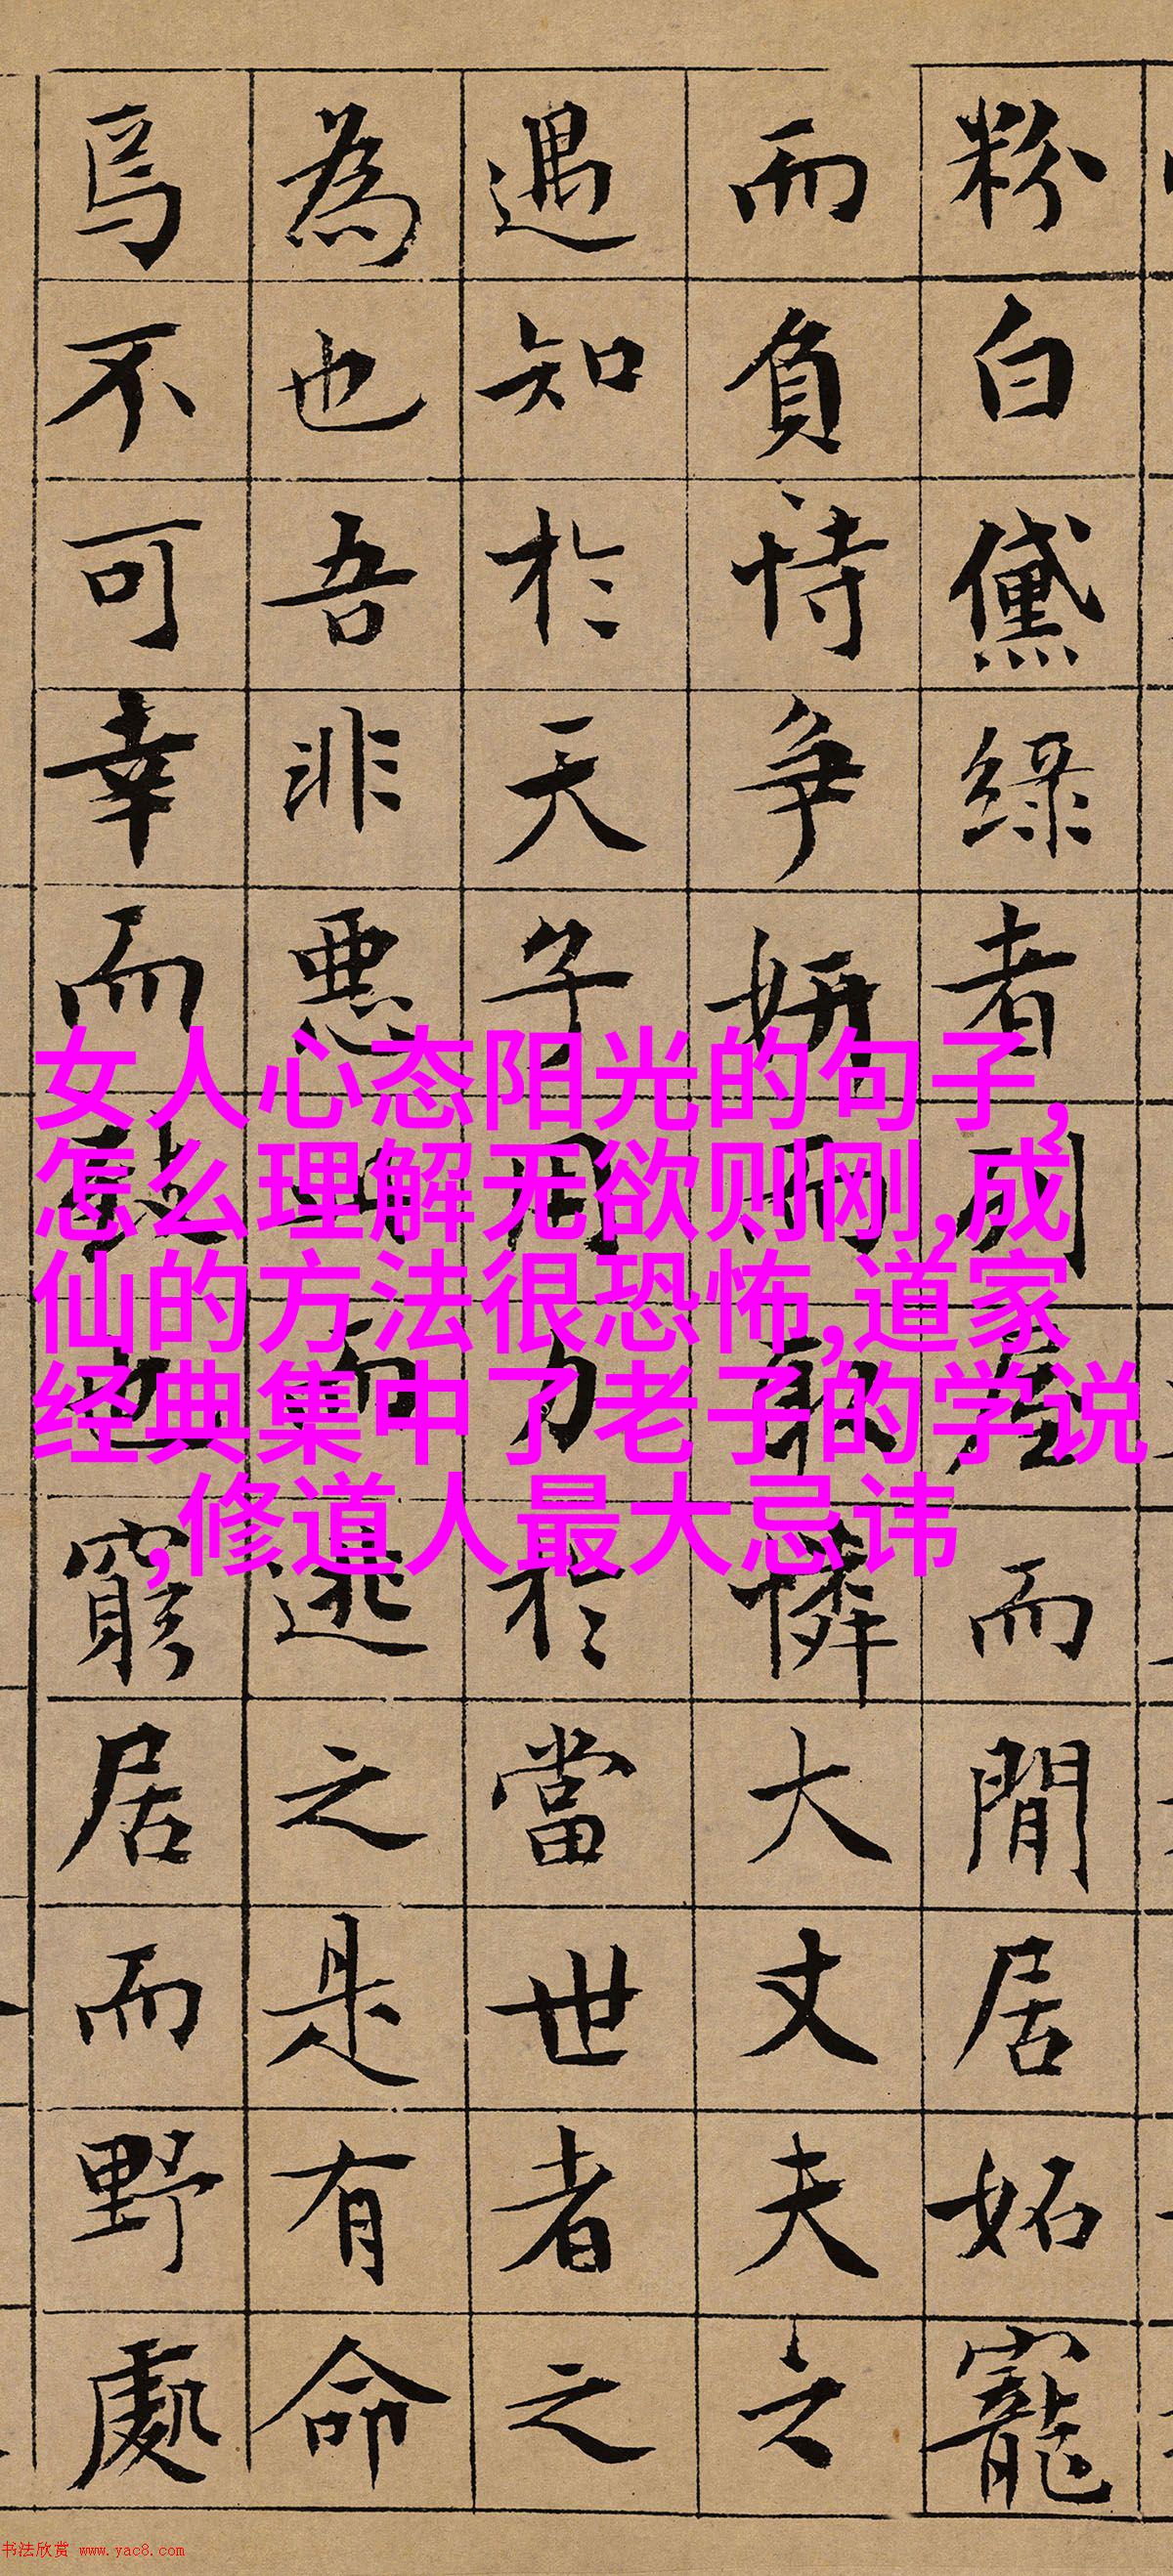 粉白黛綠者列屋而閒居妬寵
而負恃爭妍而取憐大丈夫之
遇知於天子用力於當世者之
為也吾非惡此而逃之是有命
焉不可幸而致也窮居而野處
女人心态阳光的句子,
怎么理解无欲则刚,成
仙的方法很恐怖,道家
经典集中了老子的学说
,修道人最大忌讳
书法欣赏 www.yac8.com